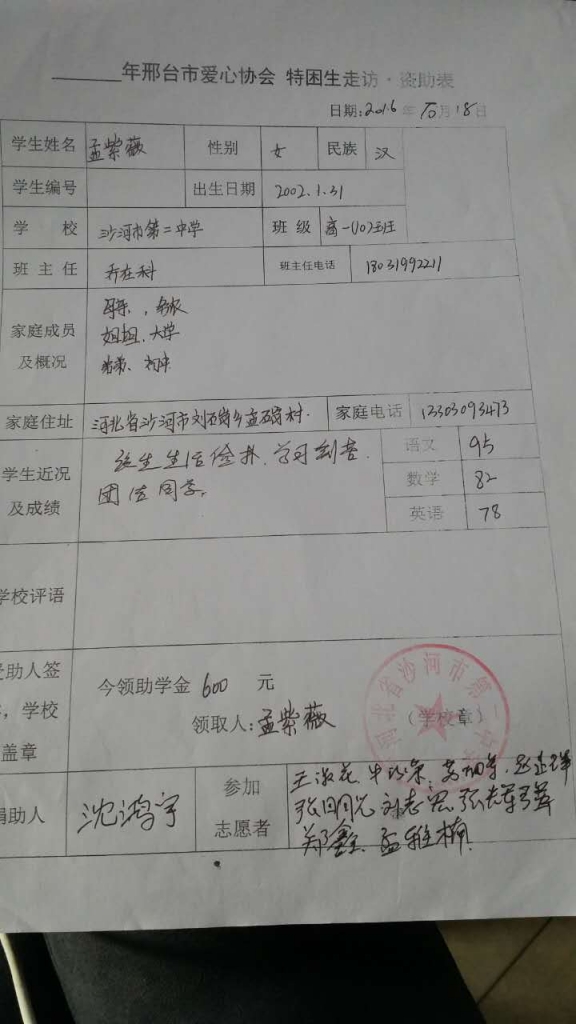 年邢台市爱心协会 特困生走访·资助表
日期:2016年10月18日
学生姓名 孟紫薇 性别 女 民族 汉
学生编号 出生日期 2002.1.31
学 校 沙河市第二中学 班 级 高一(10)班
班 主 任 乔在科 班主任电话 18031992211
家庭成员 母亲、务农
及概况 姐姐、大学
弟弟、初中
家庭住址 河北省沙河市刘石岗乡孟石岗村. 家庭电话 13303093473
学生近况 该生生活俭朴、学习刻苦、 语文 95
及成绩 团结同学。 数学 82
英语 78
学校评语
受助人签 今领助学金 600 元
学校
盖章 领取人:孟紫薇 (学校章)
河北省沙河市第二中学
捐助人 沈鸿宇 参加
志愿者 王淑花
刘志宏
郑鑫、孟雅楠